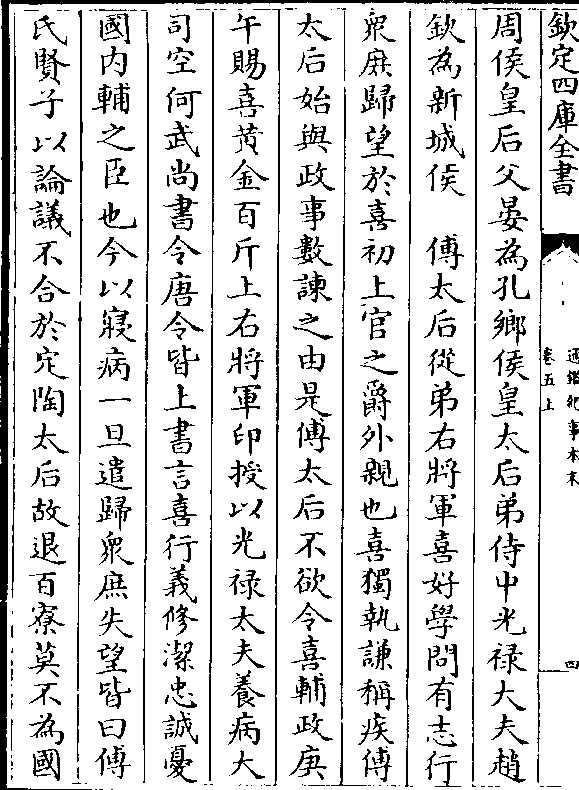 欽定四庫全書
通鑑紀事本末
卷五上
四
周侯皇后父晏為孔鄉侯皇太后弟侍中光禄大夫趙
欽為新城侯　傅太后從弟右將軍喜好學問有志行
衆庶歸望於喜初上官之爵外親也喜獨執謙稱疾傅
太后始與政事數諫之由是傅太后不欲令喜輔政庚
午賜喜黄金百斤上右將軍印授以光禄大夫養病大
司空何武尚書令唐令皆上書言喜行義修潔忠誠憂
國内輔之臣也今以寢病一旦遣歸衆庶失望皆曰傅
氏賢子以論議不合於定陶太后故退百寮莫不為國